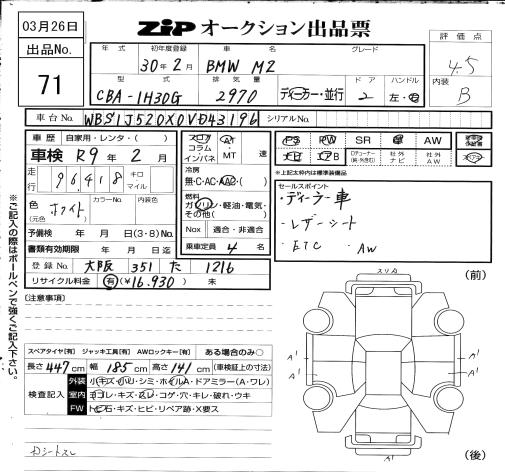 03月26日
ZIP オークション出品票
出品No.
71
年式 初年度登録 車名 グレード
30年2月 BMW M2
型式 排気量 ドア ハンドル
CBA-1H30G 2970 ディーラー・並行 2 左・右
評価点
4.5
内装
B
車台No. WBS1J520X0VD43196 シリアルNo.
車歴 自家用・レンタ・( )
車検 R9年2月
走行 96,418 キロ マイル
色(元色) ホワイト カラーNo. 内装色
予備検 年 月 日(3・8)No.
書類有効期限 年 月 日迄
登録No. 大阪 351 た 1216
リサイクル料金 有(¥16,930) 未
フロア コラム インパネ AT・MT 速
冷房
無・C・AC・AAC・( )
燃料
ガソリン・軽油・電気・その他( )
Nox 適合・非適合
乗車定員 4 名
PS PW SR 革 AW
ナビ エアB 社外ナビ 社外AW
※上記太枠内は標準装備品
セールスポイント
・ディーラー車
・レザーシート
・ETC ・AW
[注意事項]
スペアタイヤ[有] ジャッキ工具[有] AWロックキー[有] ある場合のみ○
長さ447cm 幅185cm 高さ141cm (車検証上の寸法)
検査記入
外装 小キズ・小凹・シミ・ホイルA・ドアミラー(A・ワレ)
室内 ヨゴレ・キズ・スレ・コゲ・穴・キレ・破れ・ウキ
FW トビ石・キズ・ヒビ・リペア跡・X要ス
Dシートスレ
※ご記入の際はボールペンで強くご記入下さい。
(前)
スリA
A1 A1
A1 A1
(後)